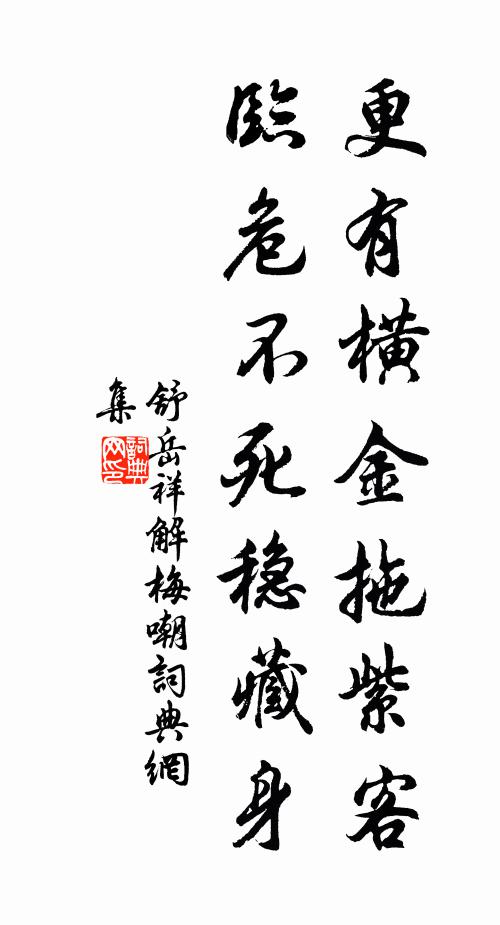 更有橫金拖紫客
臨危不死稳藏身
舒岳祥解梅嘲詞典網
集
詞典
网印